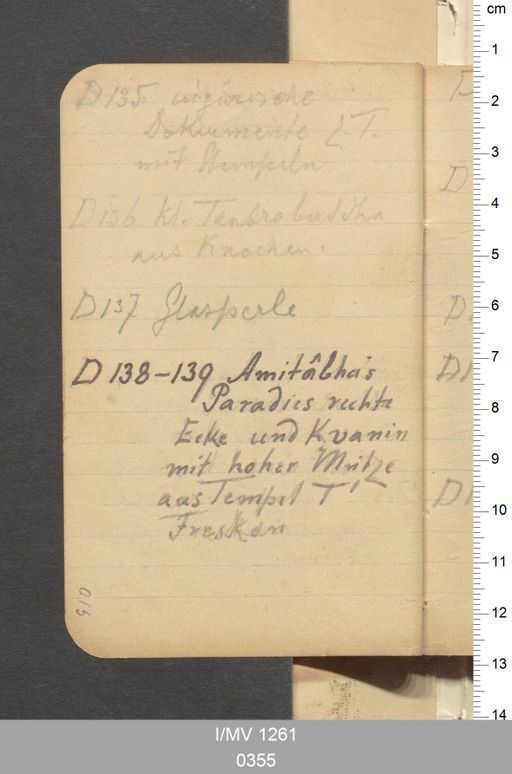 D 135. uigürische
Dokumente L. T.
mit Stempeln
D 136 kl. Tantrabuddha
aus Knochen.
D 137 Glasperle
D 138–139 Amitâbha's
Paradies rechte
Ecke und Kvanin
mit hoher Mütze
aus Tempel T'
Fresken
013
cm
1
2
3
4
5
6
7
8
9
10
11
12
13
14
I/MV 1261
0355